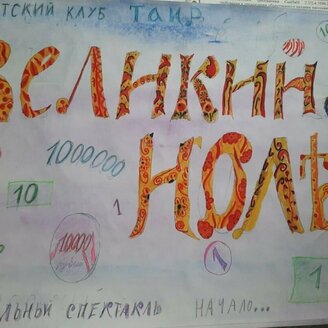 ТСКИЙ КЛУБ ТАИР
ВЕЛИКИЙ
1000000
НОЛЬ
10
1
10000
1
1
ЛЬНЫЙ СПЕКТАКЛЬ НАЧАЛО...